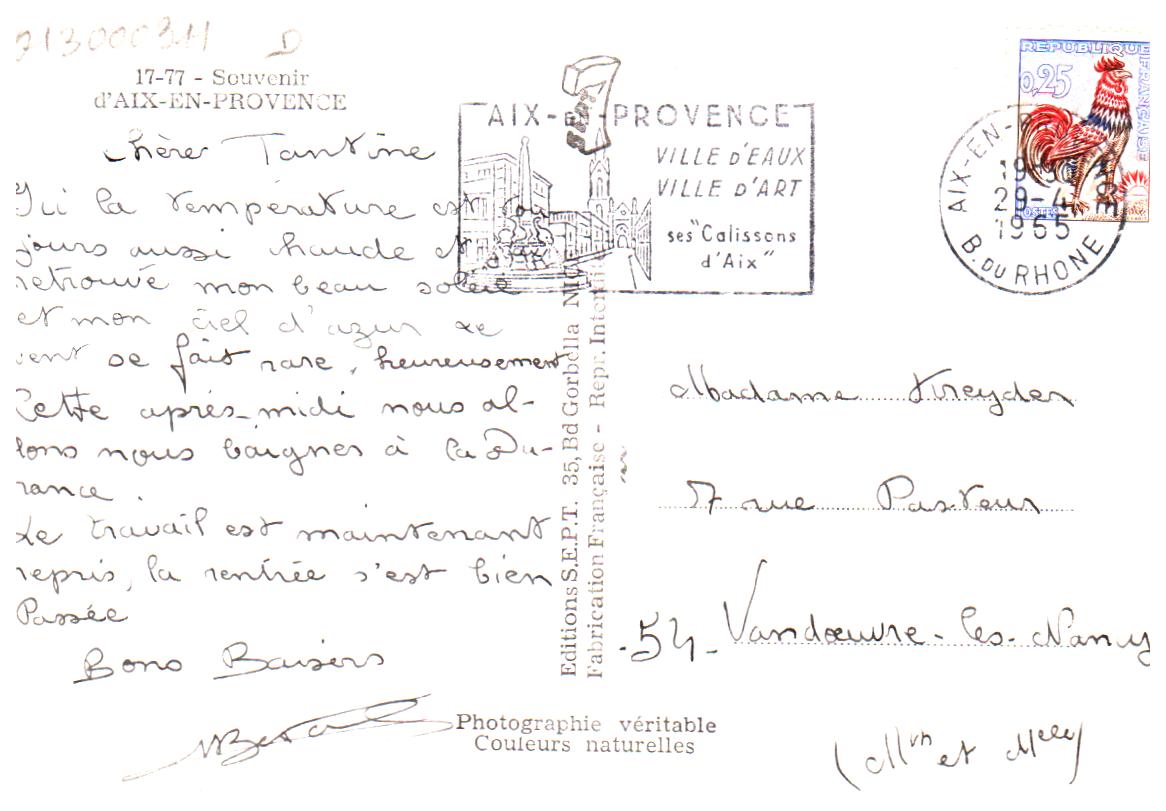 213000311 D
17-77 - Souvenir
d'AIX-EN-PROVENCE
Chère Tantine
Ici la température est tou
jours aussi chaude et j'ai
retrouvé mon beau soleil
et mon ciel d'azur Le
vent se fait rare, heureusement
Cette après-midi nous al-
lons nous baigner à la Du-
rance.
Le travail est maintenant
repris, la rentrée s'est bien
Passée
Bons Baisers
Editions S.E.P.T. 35, Bd Gorbella
Fabrication Française - Repr. Interdite
Photographie véritable
Couleurs naturelles
AIX-EN-PROVENCE
VILLE D'EAUX
VILLE D'ART
ses "Calissons
d'Aix"
REPUBLIQUE FRANÇAISE
0,25
POSTES
AIX-EN-
29-4
1965
B. DU RHONE
Madame
rue Pasteur
-54- Vandœuvre-les-Nancy